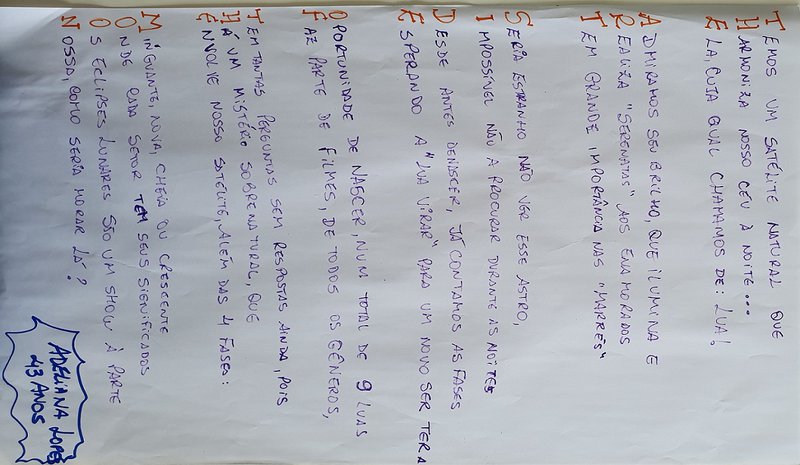 TEMOS UM SATÉLITE NATURAL QUE
HARMONIZA NOSSO CÉU À NOITE...
ELA, CUJA QUAL CHAMAMOS DE: LUA!
ADMIRAMOS SEU BRILHO, QUE ILUMINA E
REALIZA "SERENATAS" AOS ENAMORADOS
TEM GRANDE IMPORTÂNCIA NAS "MARRÉS"
SERIA ESTRANHO NÃO VER ESSE ASTRO,
IMPOSSÍVEL NÃO A PROCURAR DURANTE AS NOITES
DESDE ANTES DE NASCER, JÁ CONTAMOS AS FASES
ESPERANDO A "LUA VIRAR" PARA UM NOVO SER TER A
OPORTUNIDADE DE NASCER, NUM TOTAL DE 9 LUAS
FAZ PARTE DE FILMES, DE TODOS OS GÊNEROS,
TEM TANTAS PERGUNTAS SEM RESPOSTAS AINDA, POIS
HÁ UM MISTÉRIO SOBRENATURAL, QUE
ENVOLVE NOSSO SATÉLITE, ALÉM DAS 4 FASES:
MINGUANTE, NOVA, CHEIA OU CRESCENTE
ONDE CADA SETOR TEM SEUS SIGNIFICADOS
OS ECLIPSES LUNARES SÃO UM SHOW À PARTE
NOSSA, COMO SERIA MORAR LÁ?
ADELIANA LOPES
43 ANOS